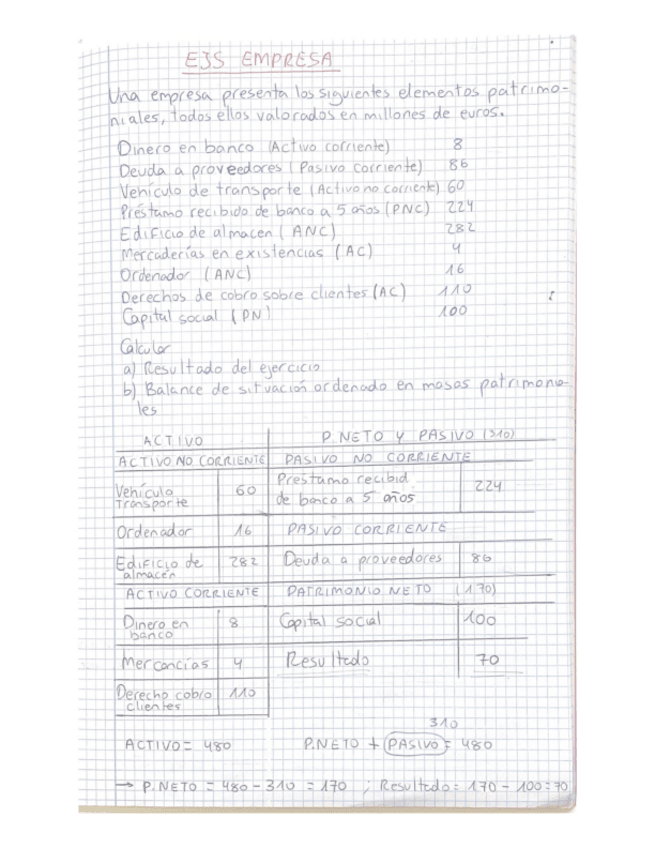 EJS EMPRESA
Una empresa presenta los siguientes elementos patrimo-
niales, todos ellos valorados en millones de euros.
Dinero en banco (Activo corriente) 8
Deuda a proveedores (Pasivo corriente) 86
Vehículo de transporte (Activo no corriente) 60
Préstamo recibido de banco a 5 años (PNC) 224
Edificio de almacen (ANC) 282
Mercaderías en existencias (AC) 4
Ordenador (ANC) 16
Derechos de cobro sobre clientes (AC) 110
Capital social (PN) 100
Calcular
a) Resultado del ejercicio
b) Balance de situación ordenado en masas patrimonia-
les
ACTIVO P.NETO Y PASIVO (310)
ACTIVO NO CORRIENTE PASIVO NO CORRIENTE
Vehículo transporte 60 Prestamo recibid. de banco a 5 años 224
Ordenador 16 PASIVO CORRIENTE
Edificio de almacén 282 Deuda a proveedores 86
ACTIVO CORRIENTE PATRIMONIO NETO (170)
Dinero en banco 8 Capital social 100
Mercancías 4 Resultado 70
Derecho cobro clientes 110
310
ACTIVO = 480 P.NETO + PASIVO = 480
→ P.NETO = 480 - 310 = 170 ; Resultado = 170 - 100 = 70